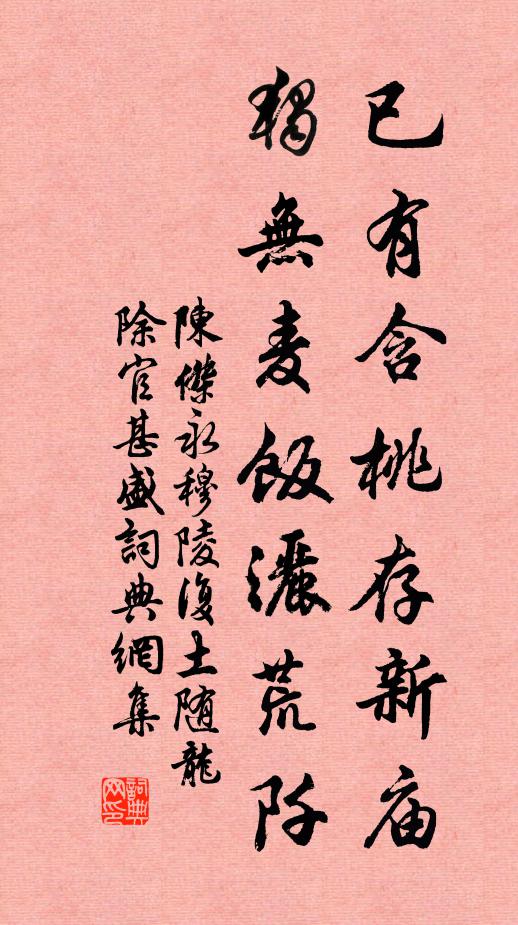 已有含桃存新庙
独無麦飯灑荒阡
陳傑永穆陵復土随龍
除官甚盛詞典網集
詞典网印